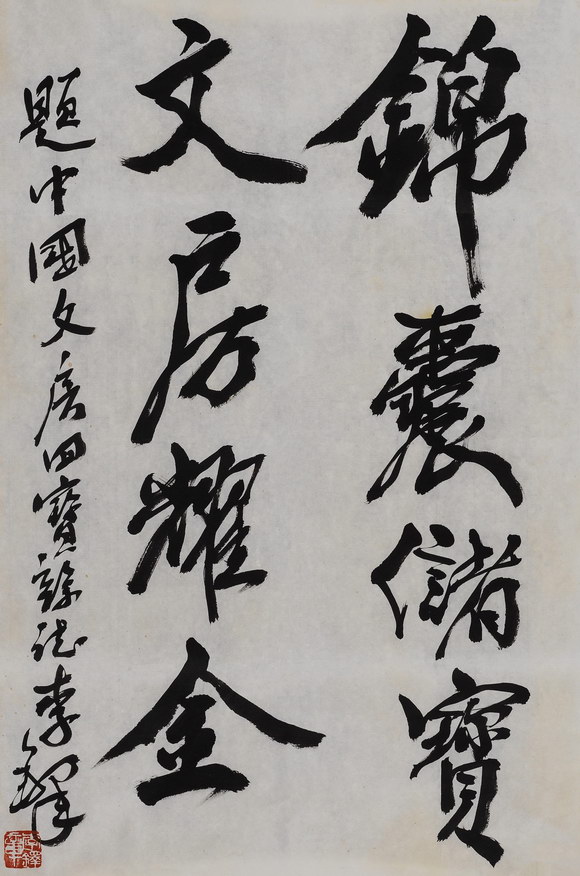 錦囊儲寶
文房耀金
題中國文房四寶雜誌李鐸
李鐸